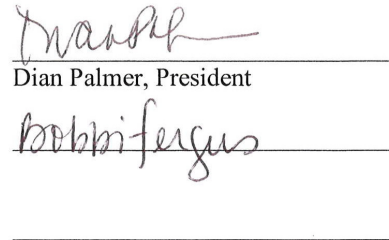 Dian Palmer, President
Bobbi Fergus